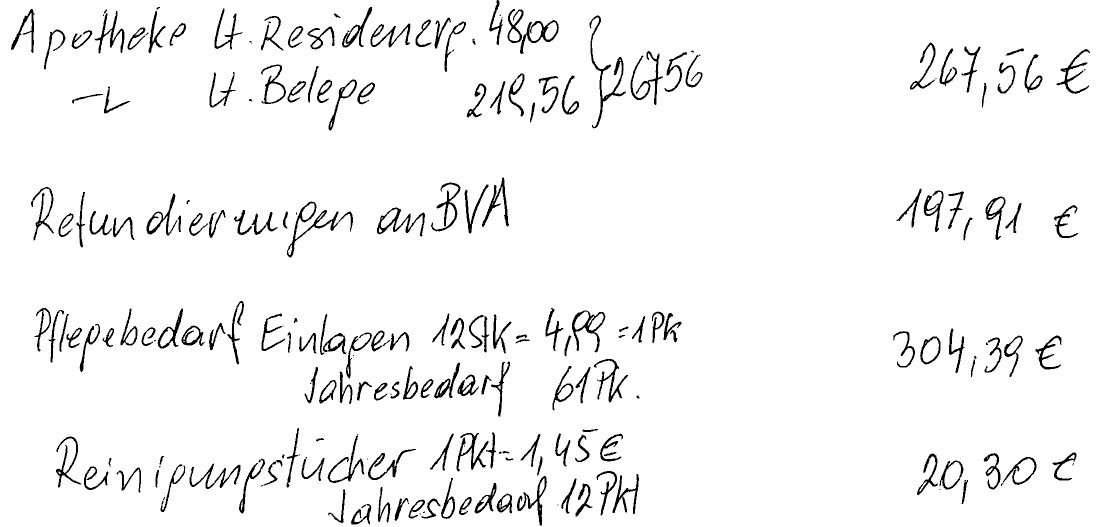 Apotheke lt. Residenzrg. 48,00
lt. Belege 219,56 } 267,56 267,56 €
Refundierungen an BVA 197,91 €
Pflegebedarf Einlagen 12 Stk = 4,99 = 1 Pk 304,39 €
Jahresbedarf 61 Pk.
Reinigungstücher 1 Pkt = 1,45 € 20,30 €
Jahresbedarf 12 Pkt